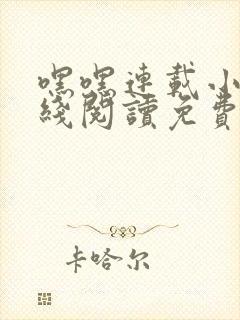 嘿嘿連載小
綫閱讀免費
卡哈尔